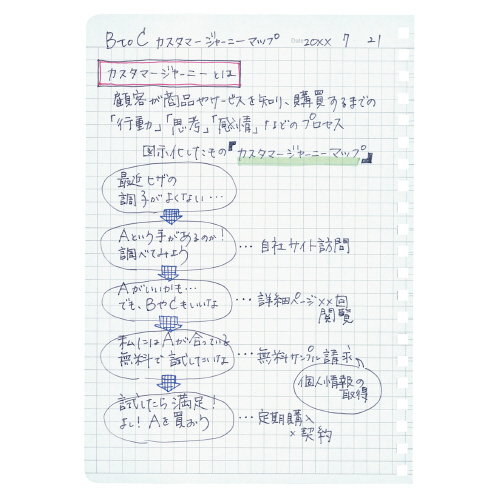 BtoC カスタマージャーニーマップ Date 20XX 7 21
カスタマージャーニーとは
顧客が商品やサービスを知り、購買するまでの
「行動」「思考」「感情」などのプロセス
図示化したもの『カスタマージャーニーマップ』
最近ヒザの
調子がよくない…
Aという手があるのか!
調べてみよう
…自社サイト訪問
Aがいいかも…
でも、BやCもいいな
…詳細ページ××回
閲覧
私にはAが合っている
無料で試したいな
…無料サンプル請求
個人情報の
取得
試したら満足!
よし!Aを買おう
…定期購入
×契約